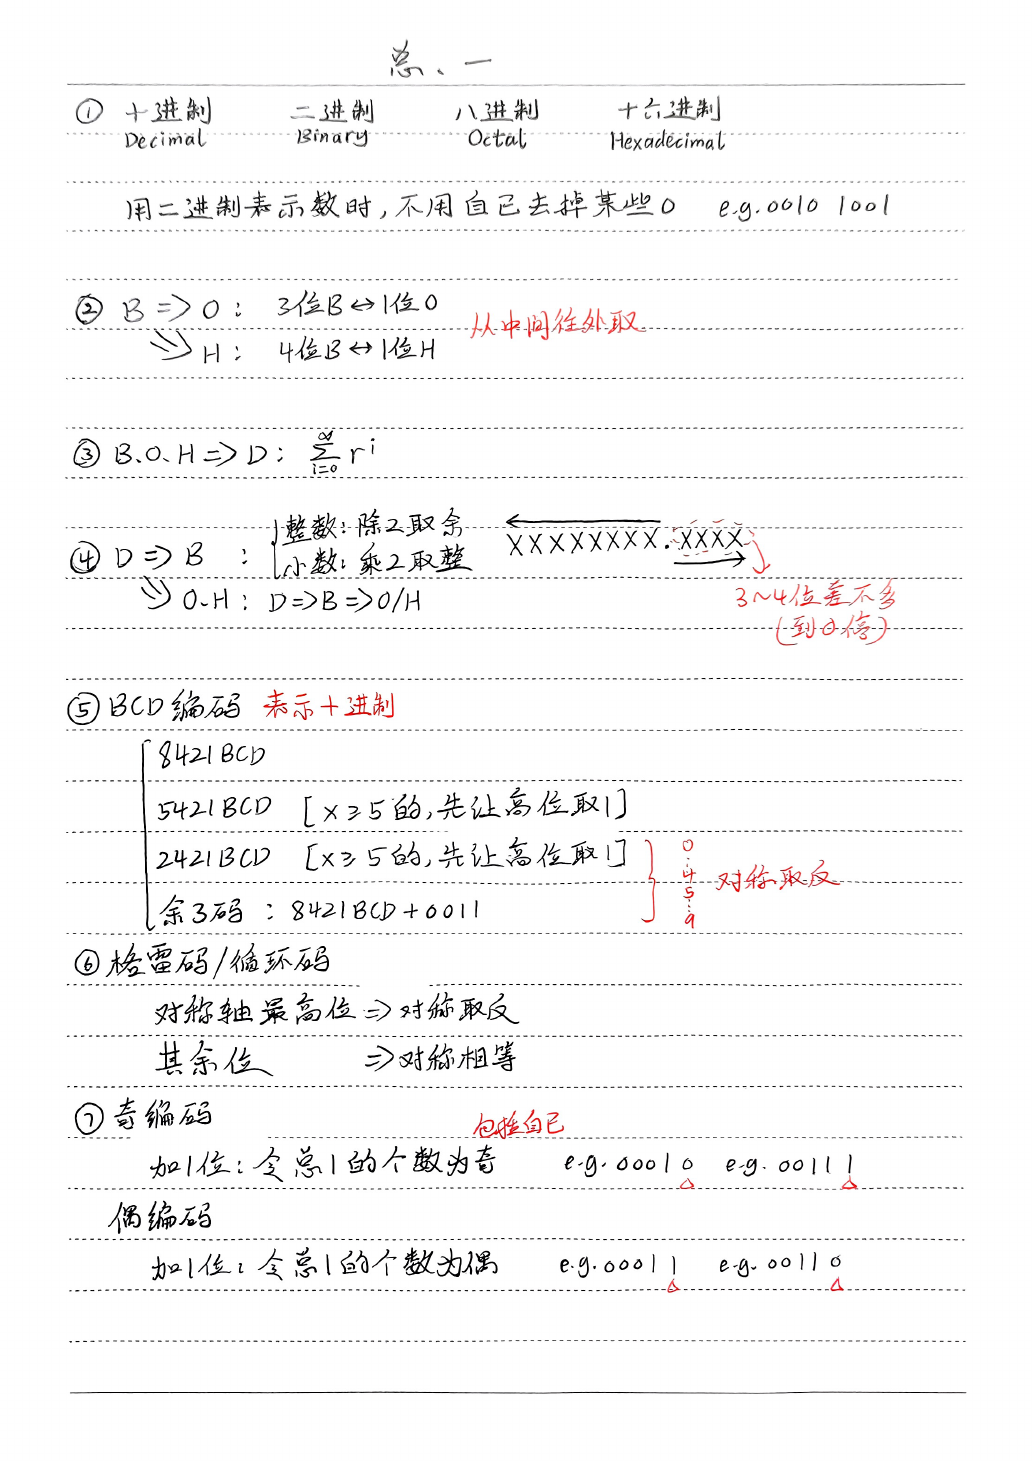 总、一
① 十进制 二进制 八进制 十六进制
Decimal Binary Octal Hexadecimal
用二进制表示数时,不用自己去掉某些0 e.g.0010 1001
② B => O: 3位B↔1位O
从中间往外取
H: 4位B↔1位H
③ B.O.H => D: ∞∑i=0 r^i
④ D => B : 整数: 除2取余 XXXXXXXX.XXXX
小数: 乘2取整
O.H: D=>B=>O/H
3~4位差不多
(到0停)
⑤ BCD编码 表示十进制
8421BCD
5421BCD [x≥5的,先让高位取1]
2421BCD [x≥5的,先让高位取1]
余3码: 8421BCD+0011
0
⋮
4
5
⋮
9
对称取反
⑥ 格雷码/循环码
对称轴最高位 => 对称取反
其余位 => 对称相等
⑦ 奇编码
包括自己
加1位: 令总1的个数为奇 e.g.00010 e.g.00111
偶编码
加1位: 令总1的个数为偶 e.g.00011 e.g.00110